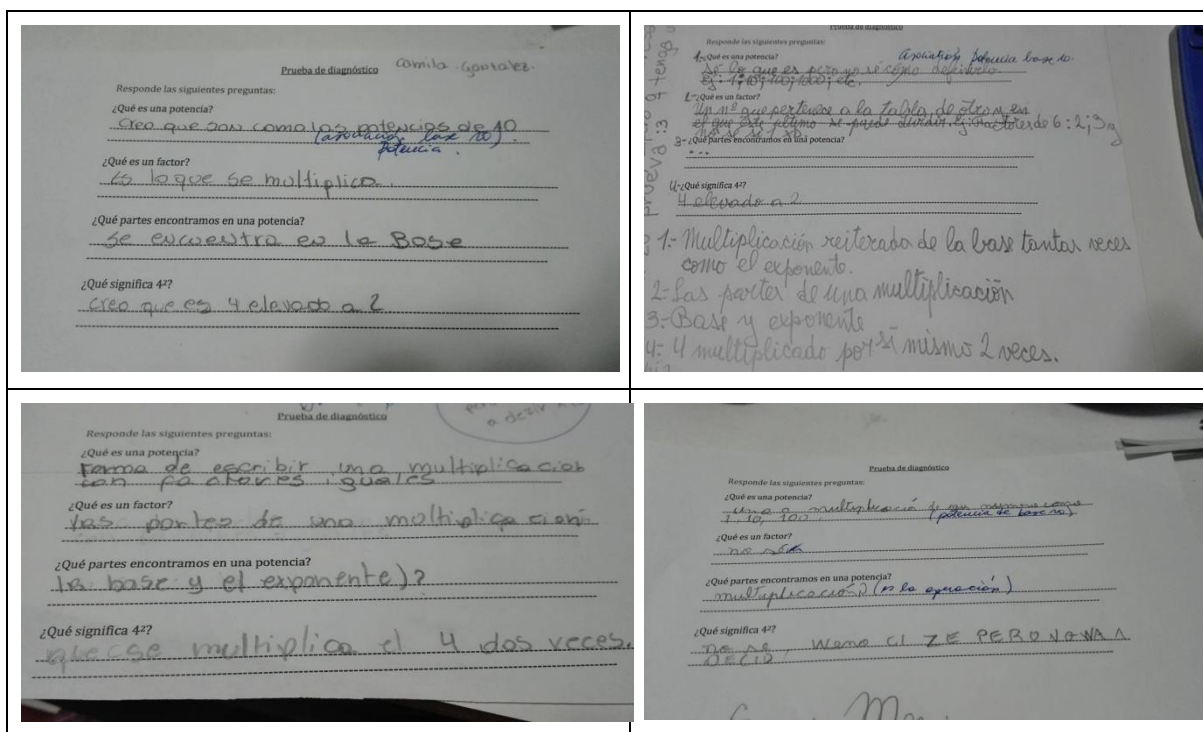 Prueba de diagnóstico
Camila Gonzalez.
Responde las siguientes preguntas:
¿Qué es una potencia?
Creo que son como las potencias de 10
(asociación base 10)
potencia.
¿Qué es un factor?
Es lo que se multiplica.
¿Qué partes encontramos en una potencia?
se encuentra en la Base
¿Qué significa 4²?
creo que es 4 elevado a 2
Prueba de diagnóstico
Responde las siguientes preguntas:
1.- ¿Qué es una potencia?
Asociation potencia base 10.
Sé lo que es pero no sé cómo definirlo.
ej: 1; 10; 100; 1000; etc.
2.- ¿Qué es un factor?
Un nº que pertenece a la tabla de otro y en
el que este último se puede dividir. ej: Factores de 6: 2; 3 y
3- ¿Qué partes encontramos en una potencia?
...
4-¿Qué significa 4²?
4 elevado a 2
1.- Multiplicación reiterada de la base tantas veces
como el exponente.
2- Las partes de una multiplicación
3.- Base y exponente
4: 4 multiplicado por sí mismo 2 veces.
Prueba de diagnóstico
a dezir
Responde las siguientes preguntas:
¿Qué es una potencia?
Forma de escribir una multiplicacion
con factores iguales
¿Qué es un factor?
las partes de una moltiplicacion
¿Qué partes encontramos en una potencia?
la base y el exponente)?
¿Qué significa 4²?
que se multiplica el 4 dos veces.
Prueba de diagnóstico
Responde las siguientes preguntas:
¿Qué es una potencia?
una multiplicación de
1, 10, 100 (potencia de base 10)
¿Qué es un factor?
no se
¿Qué partes encontramos en una potencia?
multiplicación (es la operación)
¿Qué significa 4²?
no se, weno ci ZE PERO NO WA A
DECIR